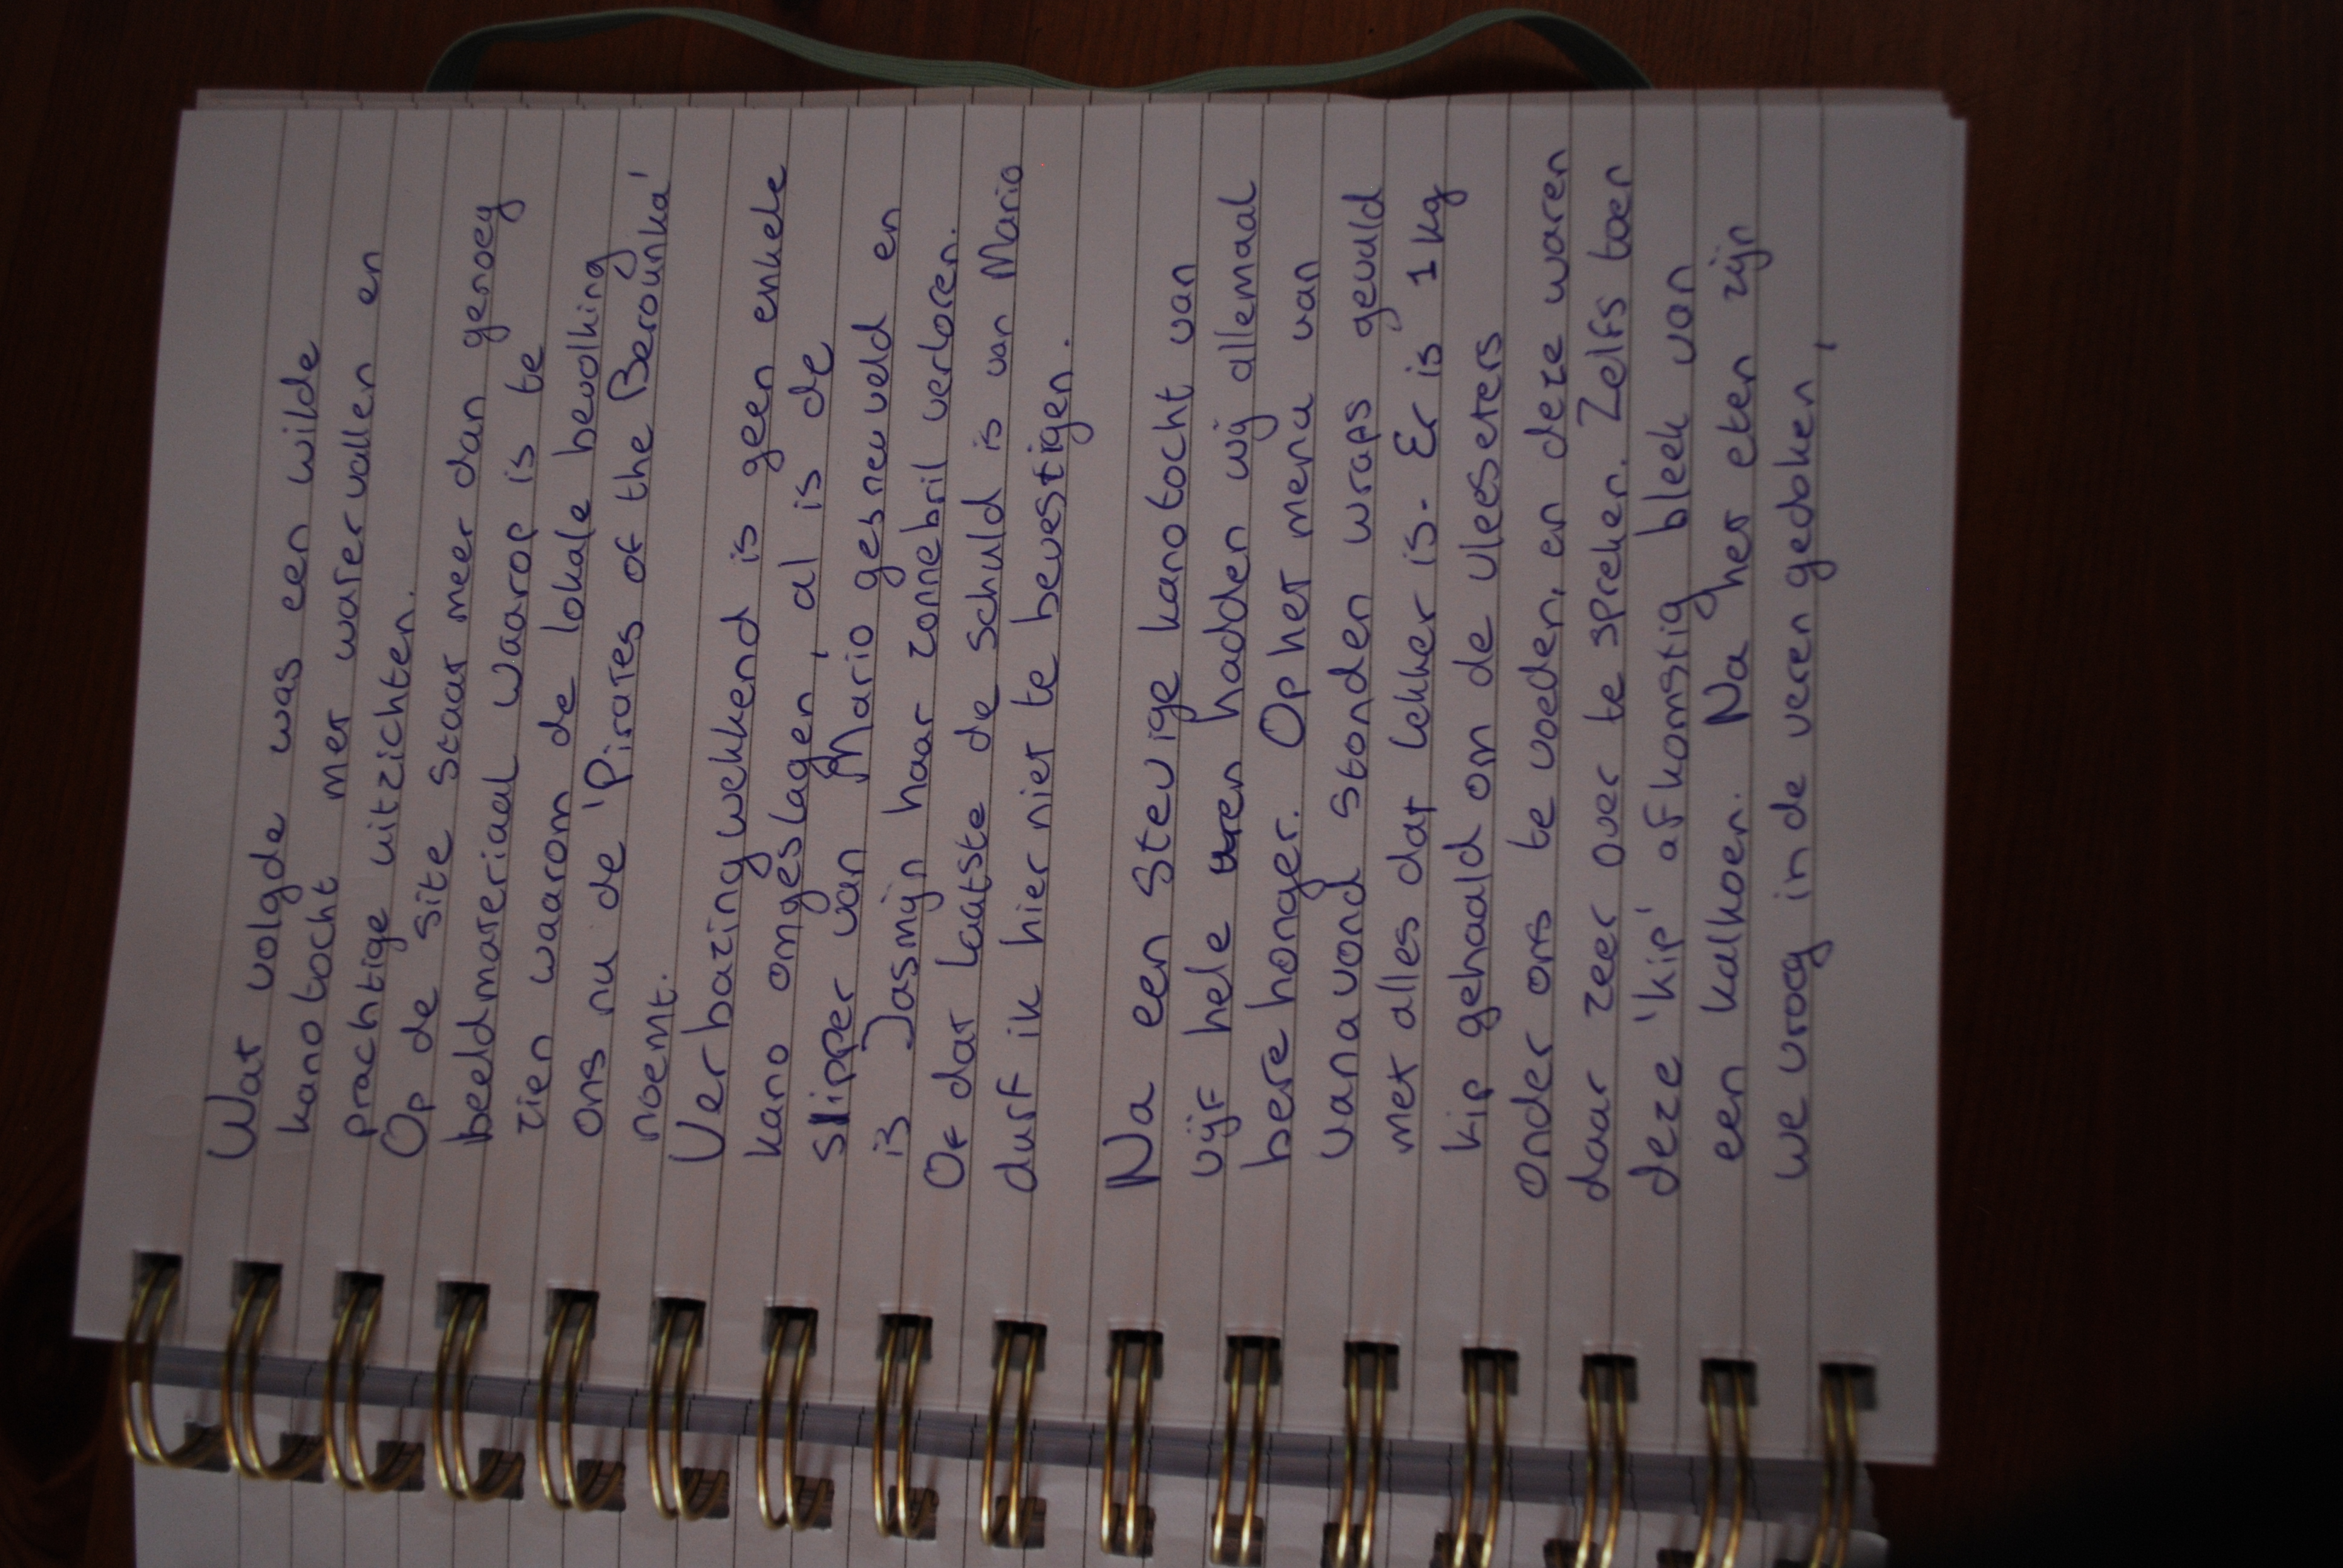 Wat volgde was een wilde
kanotocht met watervallen en
prachtige uitzichten.
Op de site staat meer dan genoeg
beeldmateriaal waarop is te
zien waarom de lokale bevolking
ons nu de 'Pirates of the Berounka'
noemt.
Verbazingwekkend is geen enkele
kano omgeslagen, al is de
slipper van Mario gesneuveld en
is Jasmijn haar zonnebril verloren.
Of dat laatste de schuld is van Mario
durf ik hier niet te bevestigen.
Na een stevige kanotocht van
vijf hele uren hadden wij allemaal
berehonger. Op het menu van
vanavond stonden wraps gevuld
met alles dat lekker is. Er is 1 kg
kip gehaald om de vleeseters
onder ons te voeden, en deze waren
daar zeer over te spreken. Zelfs toen
deze 'kip' afkomstig bleek van
een kalkoen. Na het eten zijn
we vroeg in de veren gedoken,